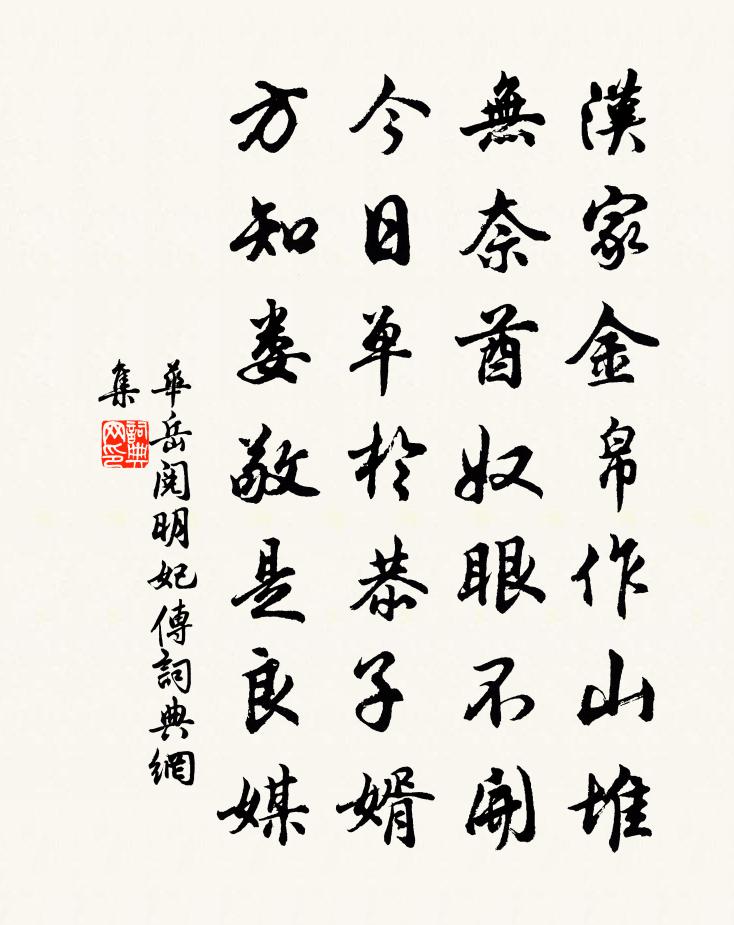 漢家金帛作山堆
無奈酋奴眼不開
今日單於恭子婿
方知婁敬是良媒
華岳閱明妃傳詞典網
集
詞典
网印